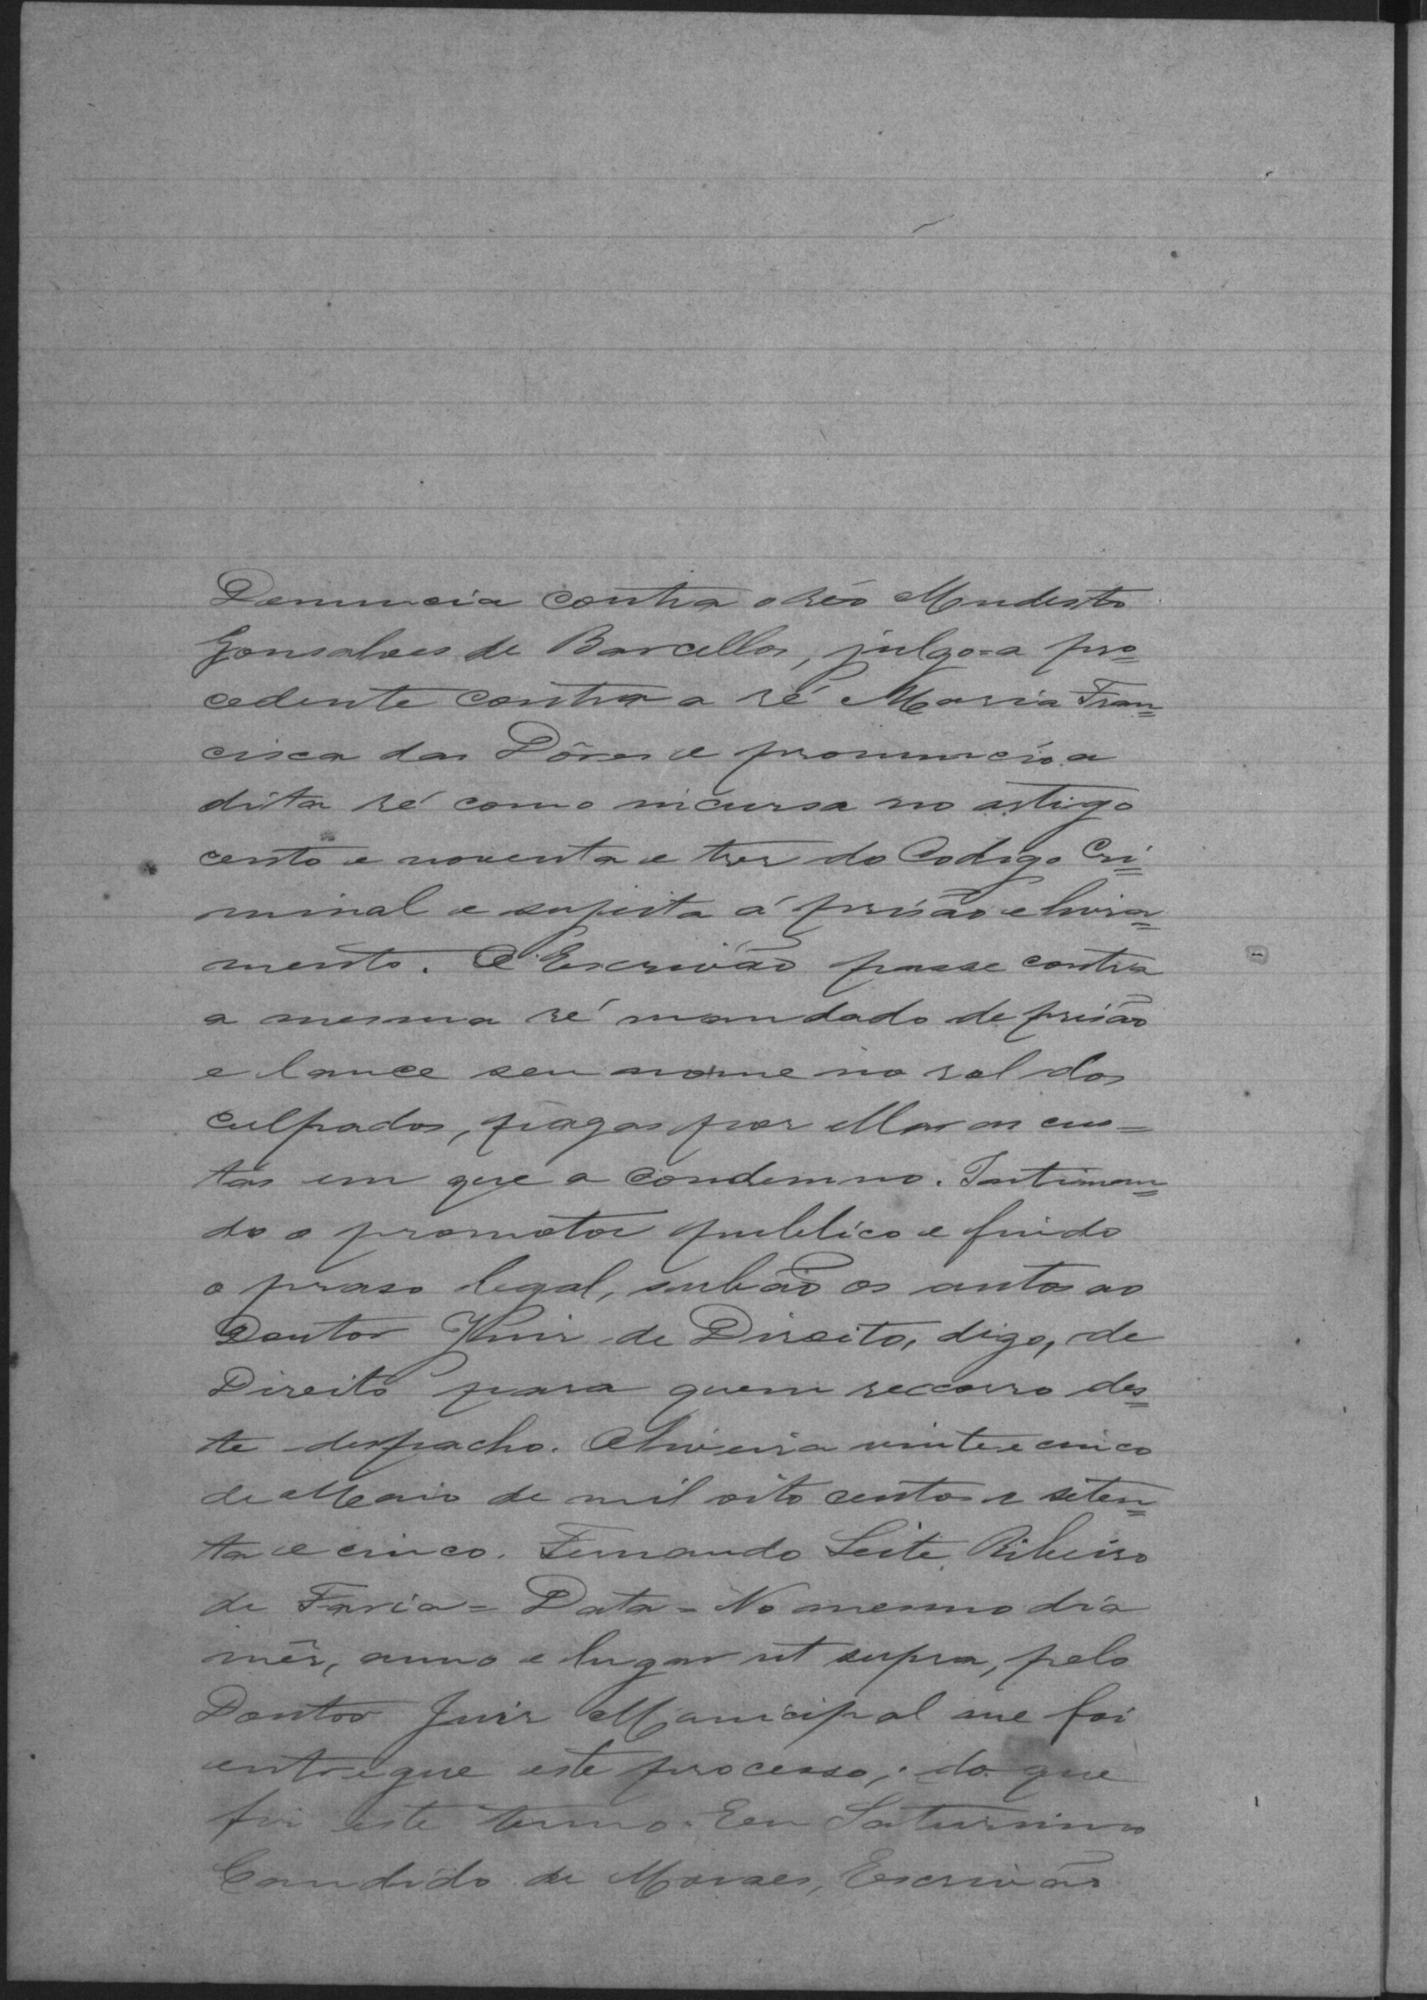 Denuncia contra o réo Modesto
Gonsalves de Barcellos, julgo-a pro=
cedente contra a ré Maria Fran=
cisca das Dôres e pronuncio a
dita ré como incursa no artigo
cento e noventa e tres do Codigo Cri=
minal e sujeita á prisão e livra=
mento. O Escrivão passe contra
a mesma ré mandado de prisão
e lance seu nome no rol dos
culpados, pagas por ella as cus=
tas em que a condemno. Intiman=
do o promotor publico e findo
o praso legal, subão os autos ao
Doutor Juiz de Direito, digo, de
Direito para quem recorro des=
te despacho. Oliveira vinte e cinco
de Maio de mil oito centos e seten=
ta e cinco. Fernando Leite Ribeiro
de Faria = Data = No mesmo dia
mês, anno e lugar ut supra, pelo
Doutor Juiz Municipal me foi
entregue este processo; do que
fiz este termo. Eu Saturnino
Candido de Moraes, Escrivão